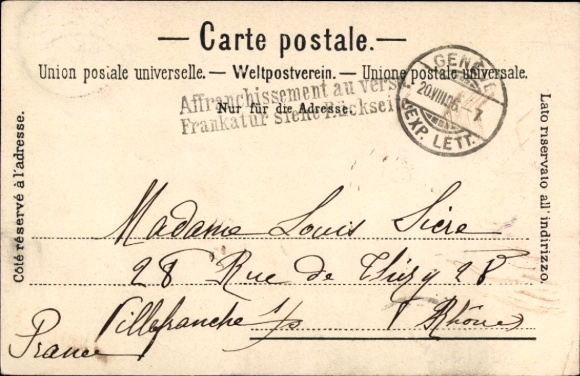 — Carte postale. —
Union postale universelle. — Weltpostverein. — Unione postale universale.
Nur für die Adresse.
Affranchissement au verso
Frankatur siehe Rückseite
GENÈVE
20.VIII.05. 7
EXP. LETT.
Côté réservé à l'adresse.
Lato riservato all'indirizzo.
Madame Louis Sicre
28 Rue de Thizy 28
Villefranche s/s Rhône
France